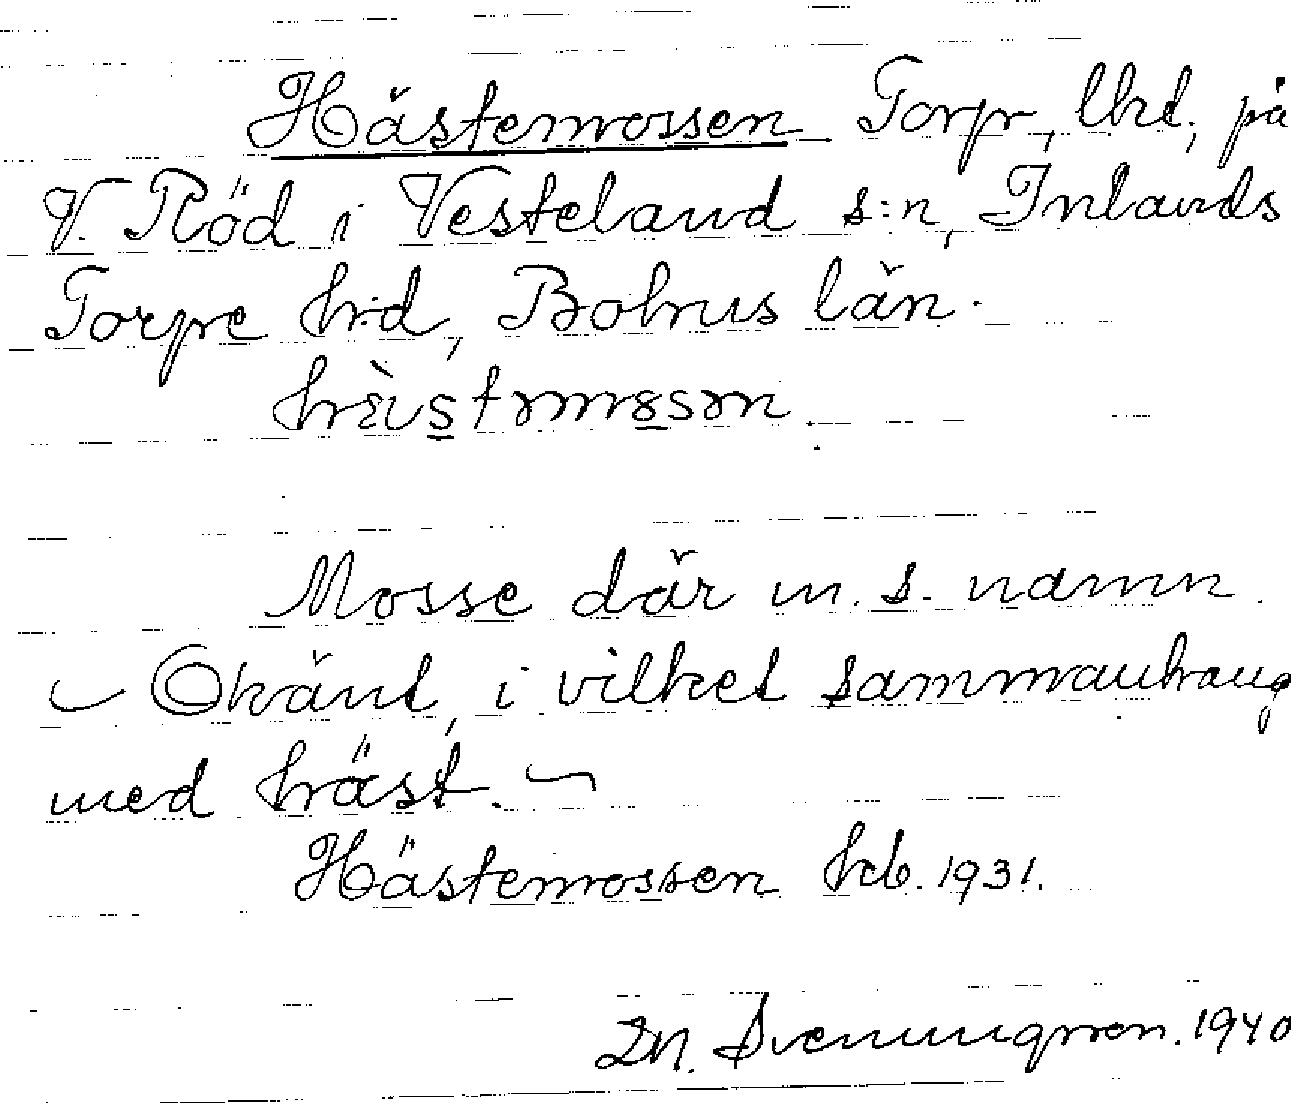 Hästemossen Torp, lhd, på
V. Röd i Vesteland s:n, Inlands
Torpe hd, Bohus län.
Mosse där m. s. namn.
Okänt, i vilket sammanhang
med häst.
Hästemossen hcb. 1931.
1940